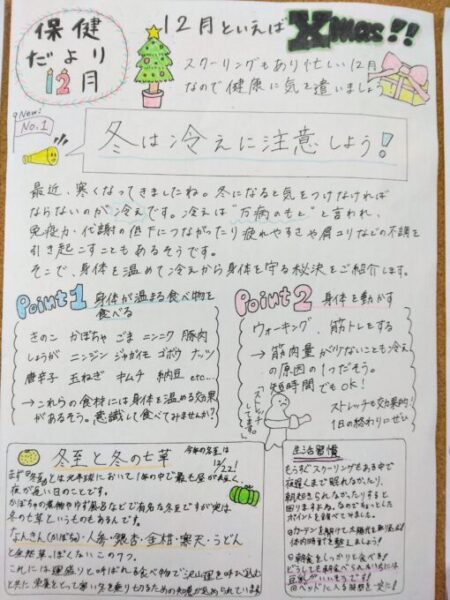 保健
だより
12月
12月といえば Xmas!!
スクーリングもあり忙しい12月
なので健康に気を遣いましょ
New!
No.1
冬は冷えに注意しよう!
最近、寒くなってきましたね。冬になると気をつけなければ
ならないのが冷えです。冷えは"万病のもと"と言われ、
免疫力・代謝の低下につながったり疲れやすさや肩コリなどの不調を
引き起こすこともあるそうです。
そこで、身体を温めて冷えから身体を守る秘訣をご紹介します。
Point1 身体が温まる食べ物を
食べる
きのこ かぼちゃ ごま ニンニク 豚肉
しょうが ニンジン ジャガイモ ゴボウ ナッツ
唐辛子 玉ねぎ キムチ 納豆 etc...
→これらの食材には身体を温める効果
があるそう。意識して食べてみませんか?
Point2 身体を動かす
ウォーキング、筋トレをする
→筋肉量が少ないことも冷え
の原因の1つだそう。
短時間でもOK!
ストレッチしてます。
ストレッチも効果的!
1日の終わりにぜひ
冬至と冬の七草
今年の冬至は
12/22!
まず冬至とは北半球において1年の中で最も昼が短く、
夜が長い日のことです。
かぼちゃの煮物やゆず風呂などで有名な冬至ですが実は
冬の七草というものもあるんです。
なんきん(かぼちゃ)・人参・銀杏・金柑・寒天・うどん
これには運盛りと呼ばれる食べ物で沢山運を呼び込む
と共に栄養をとって寒い冬を乗りきるための知恵が込められています
生活習慣
もうすぐスクーリングもある中で
夜遅くまで眠れなかったり、
朝起きられなかったりすると
困りますよね。なのでちょっとした
ポイントを調べてみました。
体内時計を整えましょう!
朝食をしっかりと食べる!